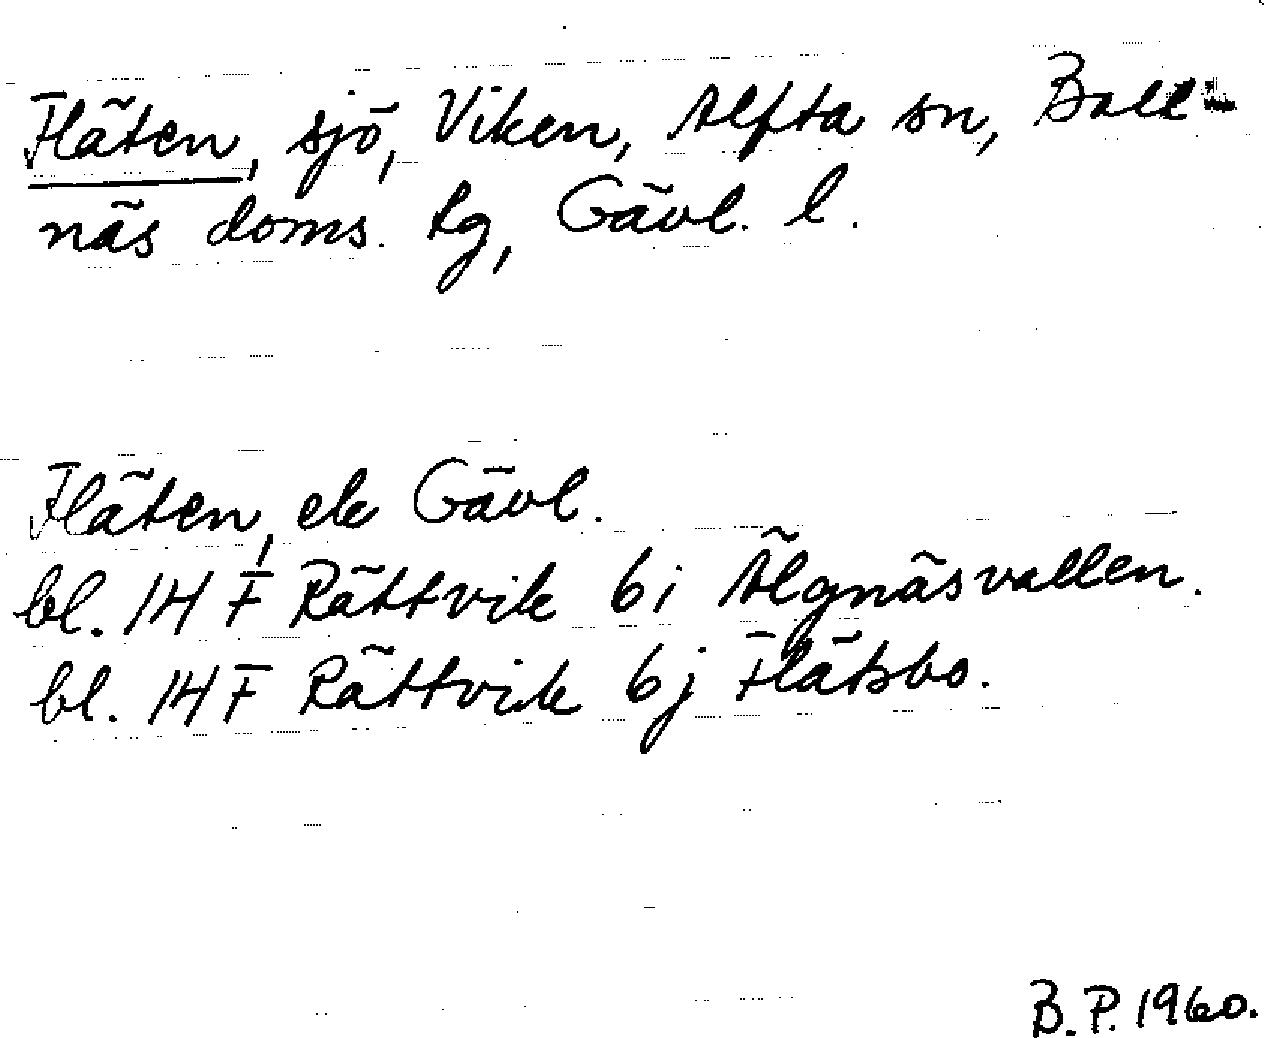 Fläten, sjö, Viken, Alfta sn, Boll-
näs doms. hg, Gävl. l.
Fläten, ek Gävl.
bl. 14 F Rättvik 6i Älgnäsvallen.
bl. 14 F Rättvik 6j Flätsbo.
B.P. 1960.